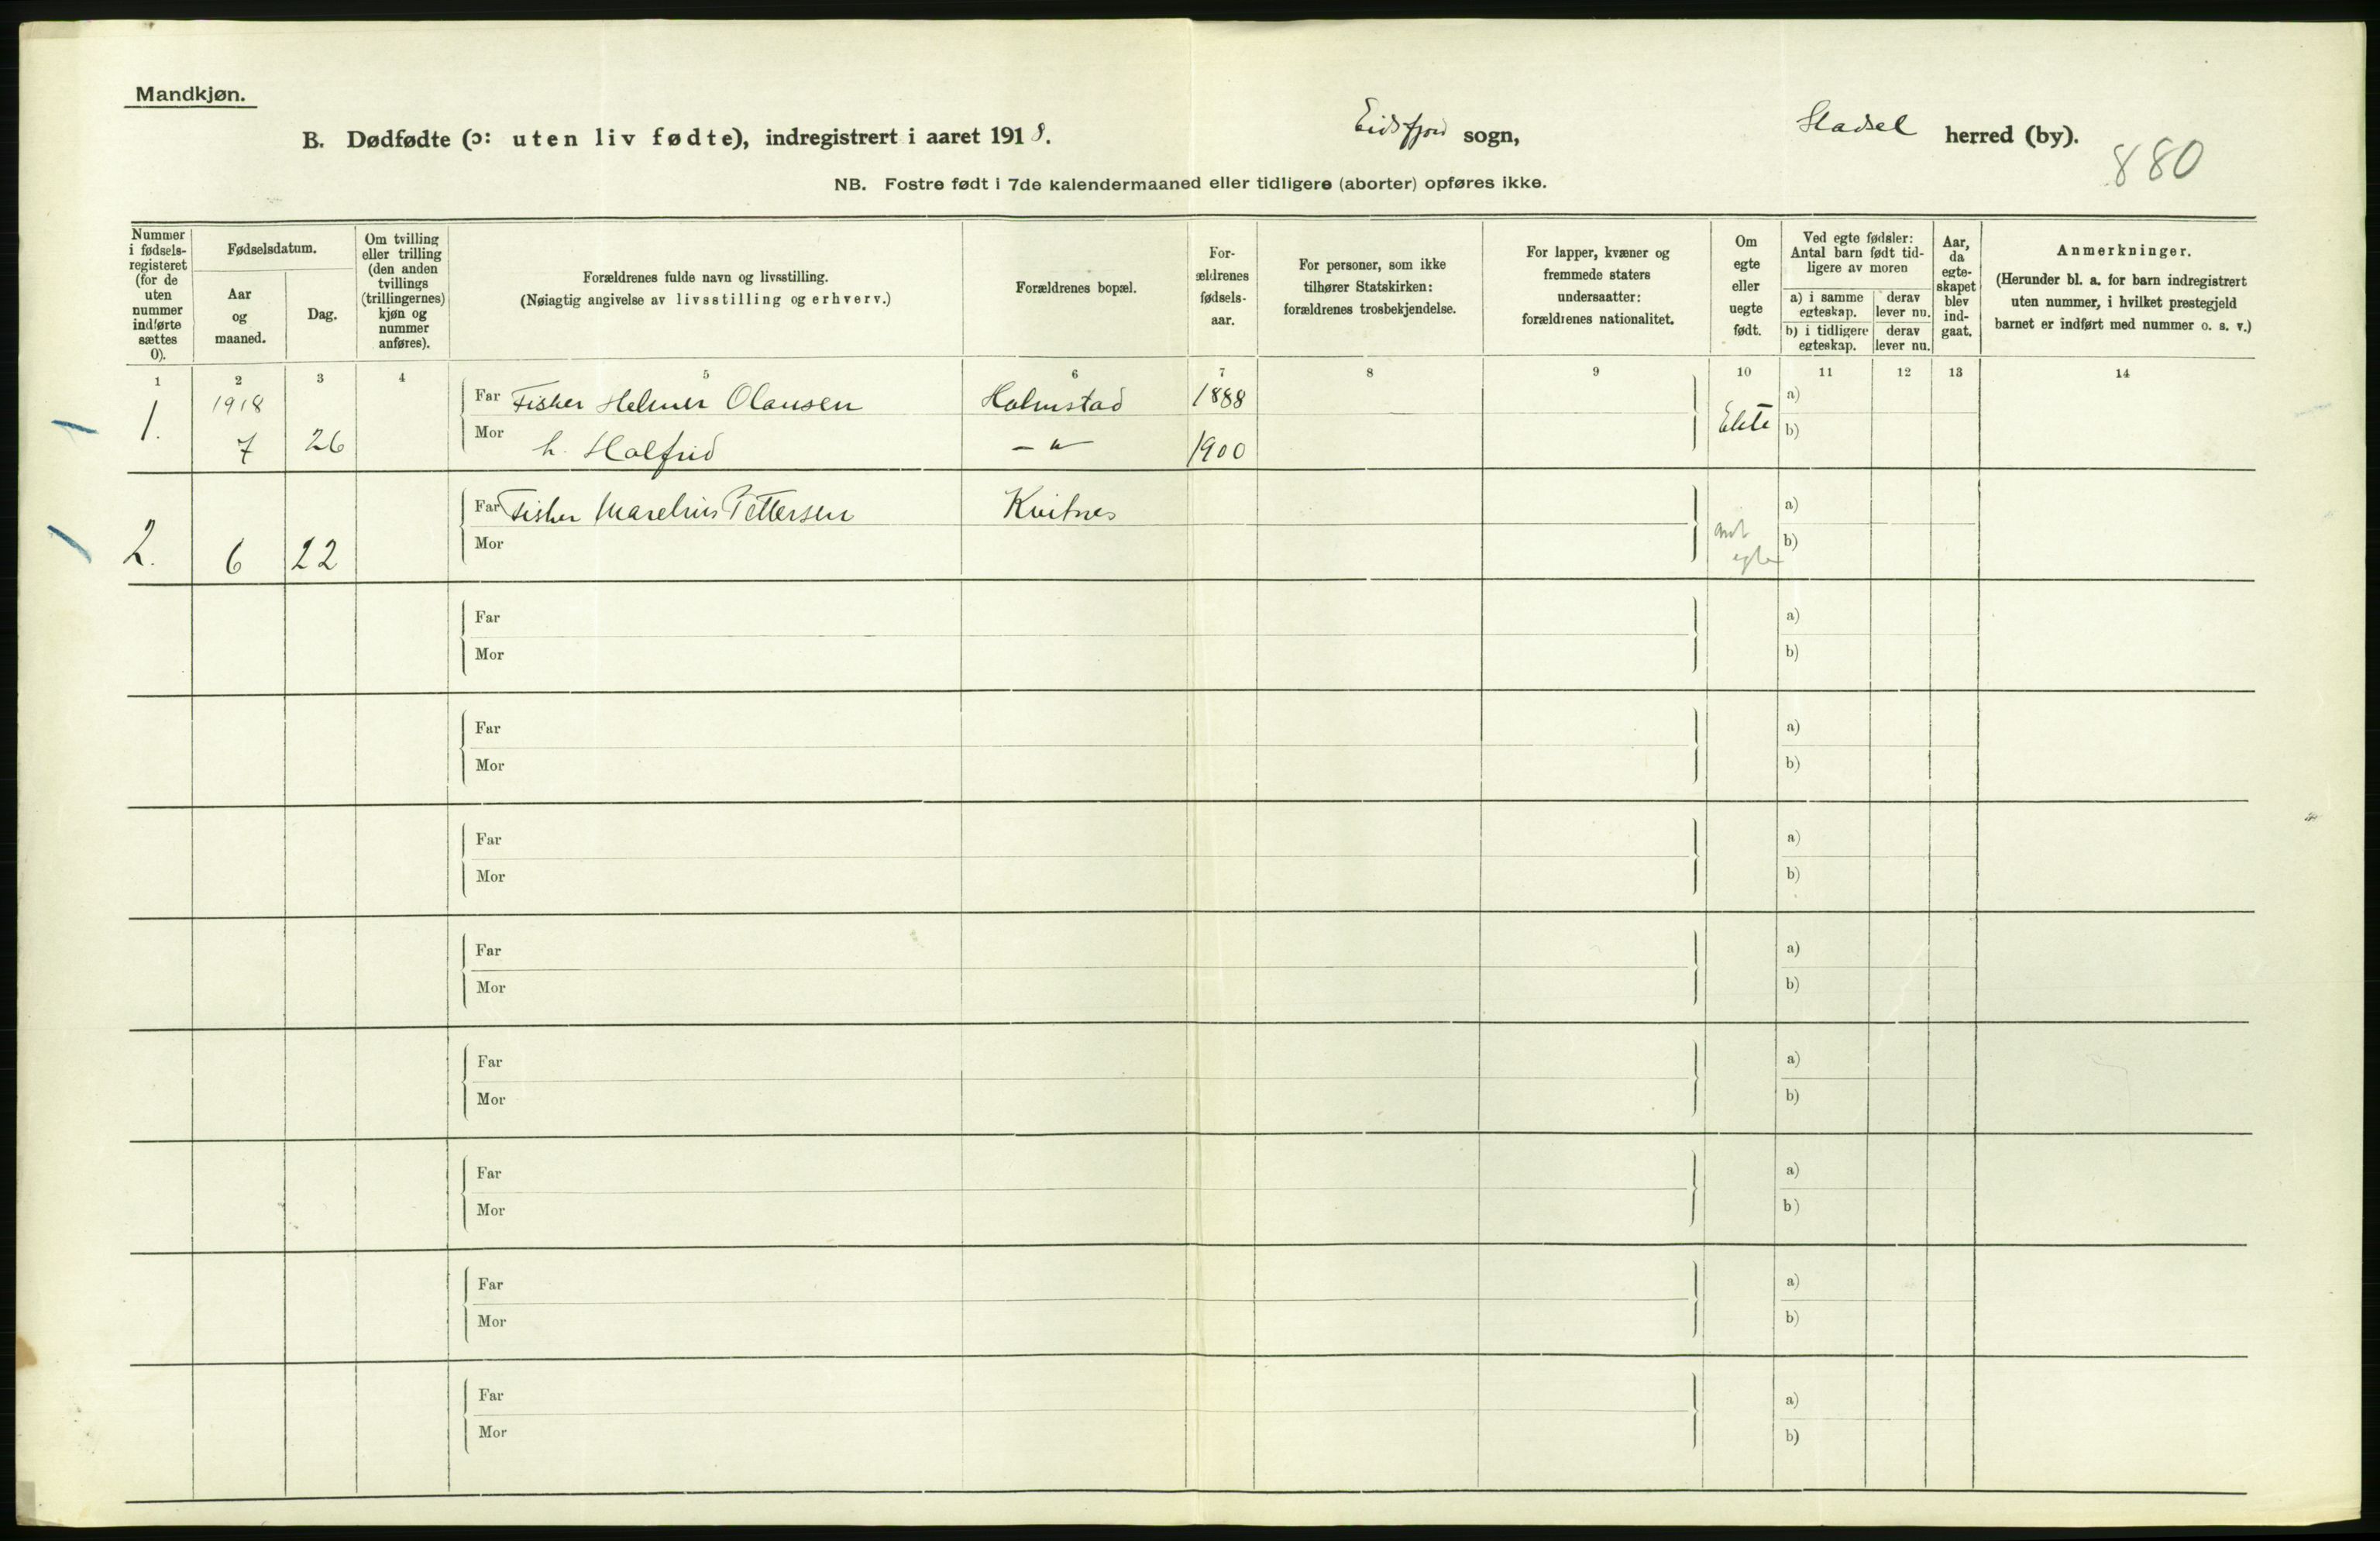 Mandkjøn.
B. Dødfødte (ɔ: uten liv fødte), indregistrert i aaret 1918. Eidsfjord sogn, Hadsel herred (by).
880
NB. Fostre født i 7de kalendermaaned eller tidligere (aborter) opføres ikke.
Nummer i fødsels-registeret (for de uten nummer indførte sættes 0).
Fødselsdatum.
Aar og maaned.
Dag.
Om tvilling eller trilling (den anden tvillings (trillingernes) kjøn og nummer anføres).
Forældrenes fulde navn og livsstilling.
(Nøiagtig angivelse av livsstilling og erhverv.)
Forældrenes bopæl.
For-ældrenes fødsels-aar.
For personer, som ikke tilhører Statskirken: forældrenes trosbekjendelse.
For lapper, kvæner og fremmede staters undersaatter: forældrenes nationalitet.
Om egte eller uegte født.
Ved egte fødsler: Antal barn født tid-ligere av moren
a) i samme egteskap. derav lever nu.
b) i tidligere egteskap. derav lever nu.
Aar, da egte-skapet blev ind-gaat.
Anmerkninger.
(Herunder bl. a. for barn indregistrert uten nummer, i hvilket prestegjeld barnet er indført med nummer o. s. v.)
1 2 3 4 5 6 7 8 9 10 11 12 13 14
1 1. 1918 Far Fisker Helmer Olausen Holmstad 1888 Ekte a)
7 26 Mor h. Halfrid — " 1900 b)
1 2. 6 22 Far Fisker Marelius Pettersen Kvitnes ant egte a)
Mor b)
Far a)
Mor b)
Far a)
Mor b)
Far a)
Mor b)
Far a)
Mor b)
Far a)
Mor b)
Far a)
Mor b)
Far a)
Mor b)
Far a)
Mor b)